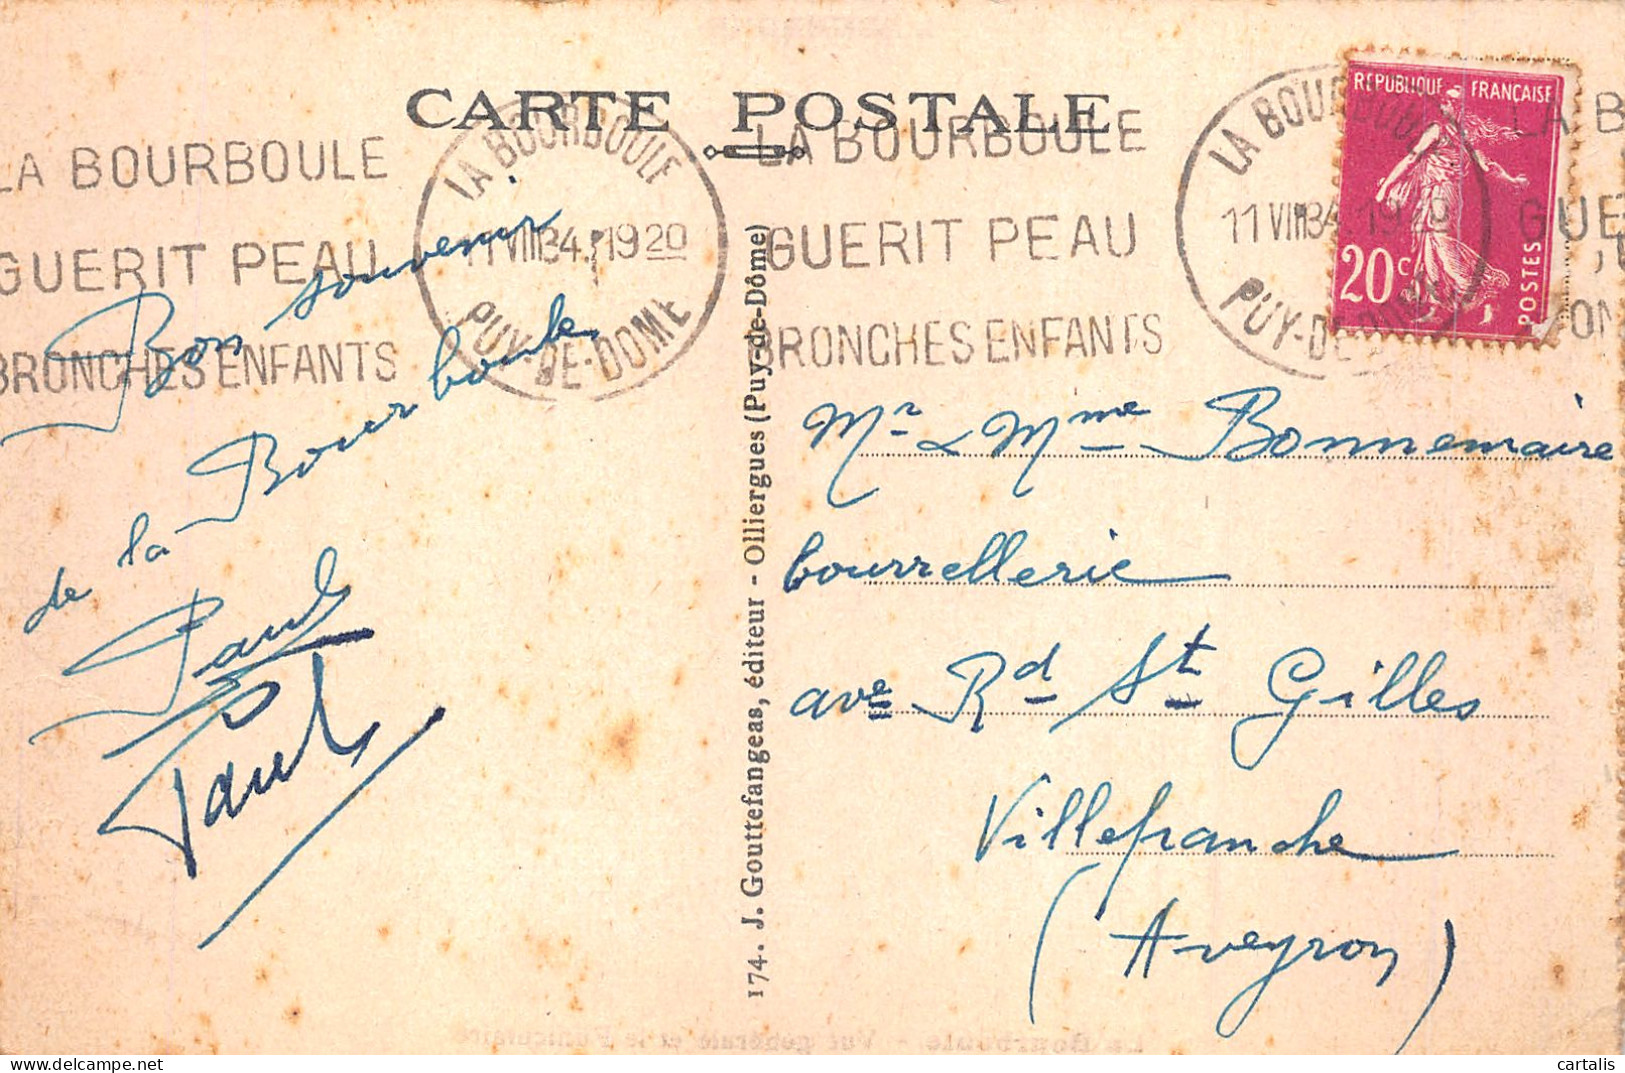 CARTE POSTALE
LA BOURBOULE
GUERIT PEAU
BRONCHES ENFANTS
LA BOURBOULE
11 VIII 34. 19 20
PUY-DE-DOME
LA BOURBOULE
GUERIT PEAU
BRONCHES ENFANTS
LA BOURBOULE
11 VIII 34. 19 20
PUY-DE-DOME
LA B
GUE
REPUBLIQUE FRANÇAISE
20c
POSTES
Bon souvenir
de la Bourboule
Paul
Paul
174. J. Gouttefangeas, éditeur - Olliergues (Puy-de-Dôme)
Mr & Mme Bonnemaire
bourrellerie
ave Rd St Gilles
Villefranche
(Aveyron)
La Bourboule - Vue générale et le Funiculaire
cartalis